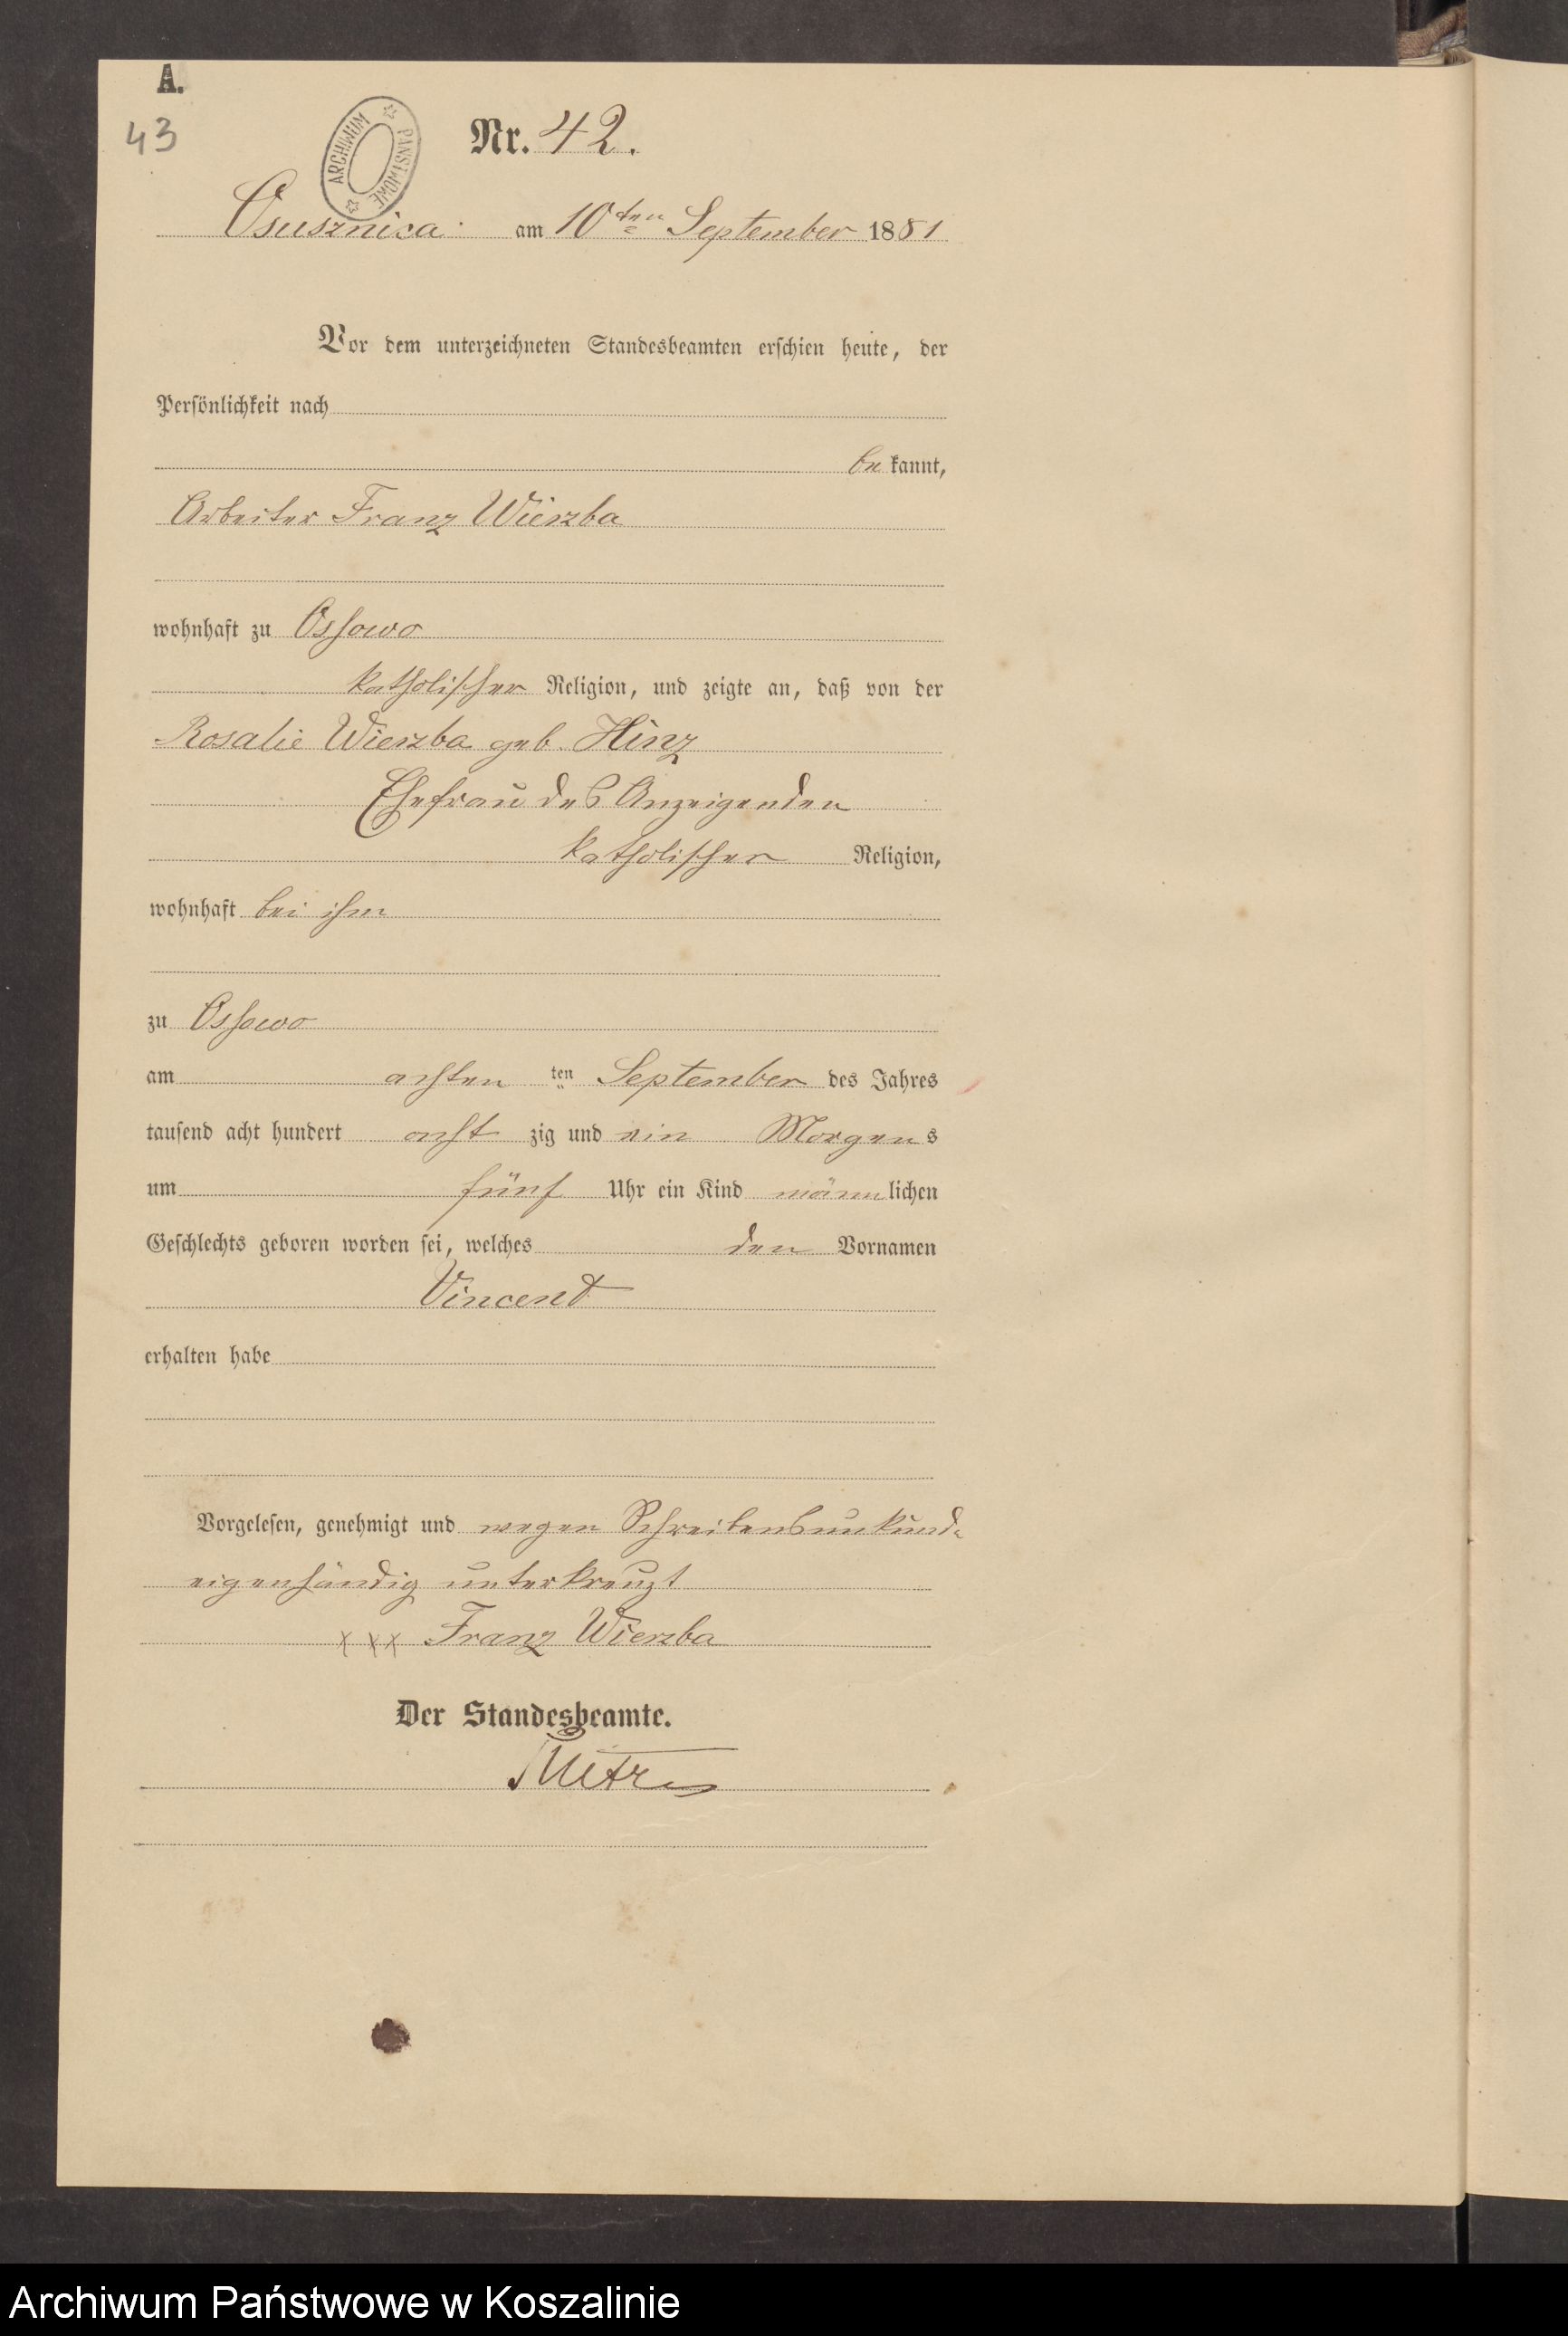 A.
43
ARCHIWUM PAŃSTWOWE
Nr. 42.
Osusznica am 10ten September 1881
Vor dem unterzeichneten Standesbeamten erschien heute, der
Persönlichkeit nach
be kannt,
Arbeiter Franz Wierzba
wohnhaft zu Ossowo
katholischer Religion, und zeigte an, daß von der
Rosalie Wierzba geb. Hinz
Ehefrau des Anzeigenden
katholischer Religion,
wohnhaft bei ihm
zu Ossowo
am achten ten September des Jahres
tausend acht hundert acht zig und ein Morgens
um fünf Uhr ein Kind männlichen
Geschlechts geboren worden sei, welches den Vornamen
Vincent
erhalten habe
Vorgelesen, genehmigt und wegen Schreibensunkund.
eigenhändig unterkreuzt
xxx Franz Wierzba
Der Standesbeamte.
Archiwum Państwowe w Koszalinie